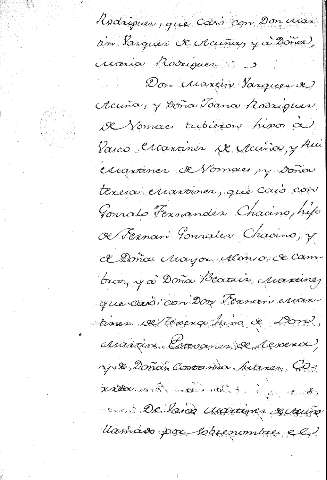 Rodriguez, que casó con Don Mar-
tin Vazquez de Acuña, y à Doña
Maria Rodriguez
Don Martin Vazquez de
Acuña, y Doña Joana Rodriguez
de Nomaes tubieron hijos à
Vasco Martinez de Acuña, y Rui
Martinez de Nomaes, y Doña
Teresa Martinez, que casó con
Gonzalo Fernandez Chacino, hijo
de Fernan Gonzalez Chacino, y
de Doña Mayor Alonso, de Cam-
bra, y à Doña Beatriz Martinez
que casó con Don Fernan Mar-
tinez de hijo de Don
Martin de
y de Doña
De Vasco Martinez de Acuña
llamado por sobrenombre el